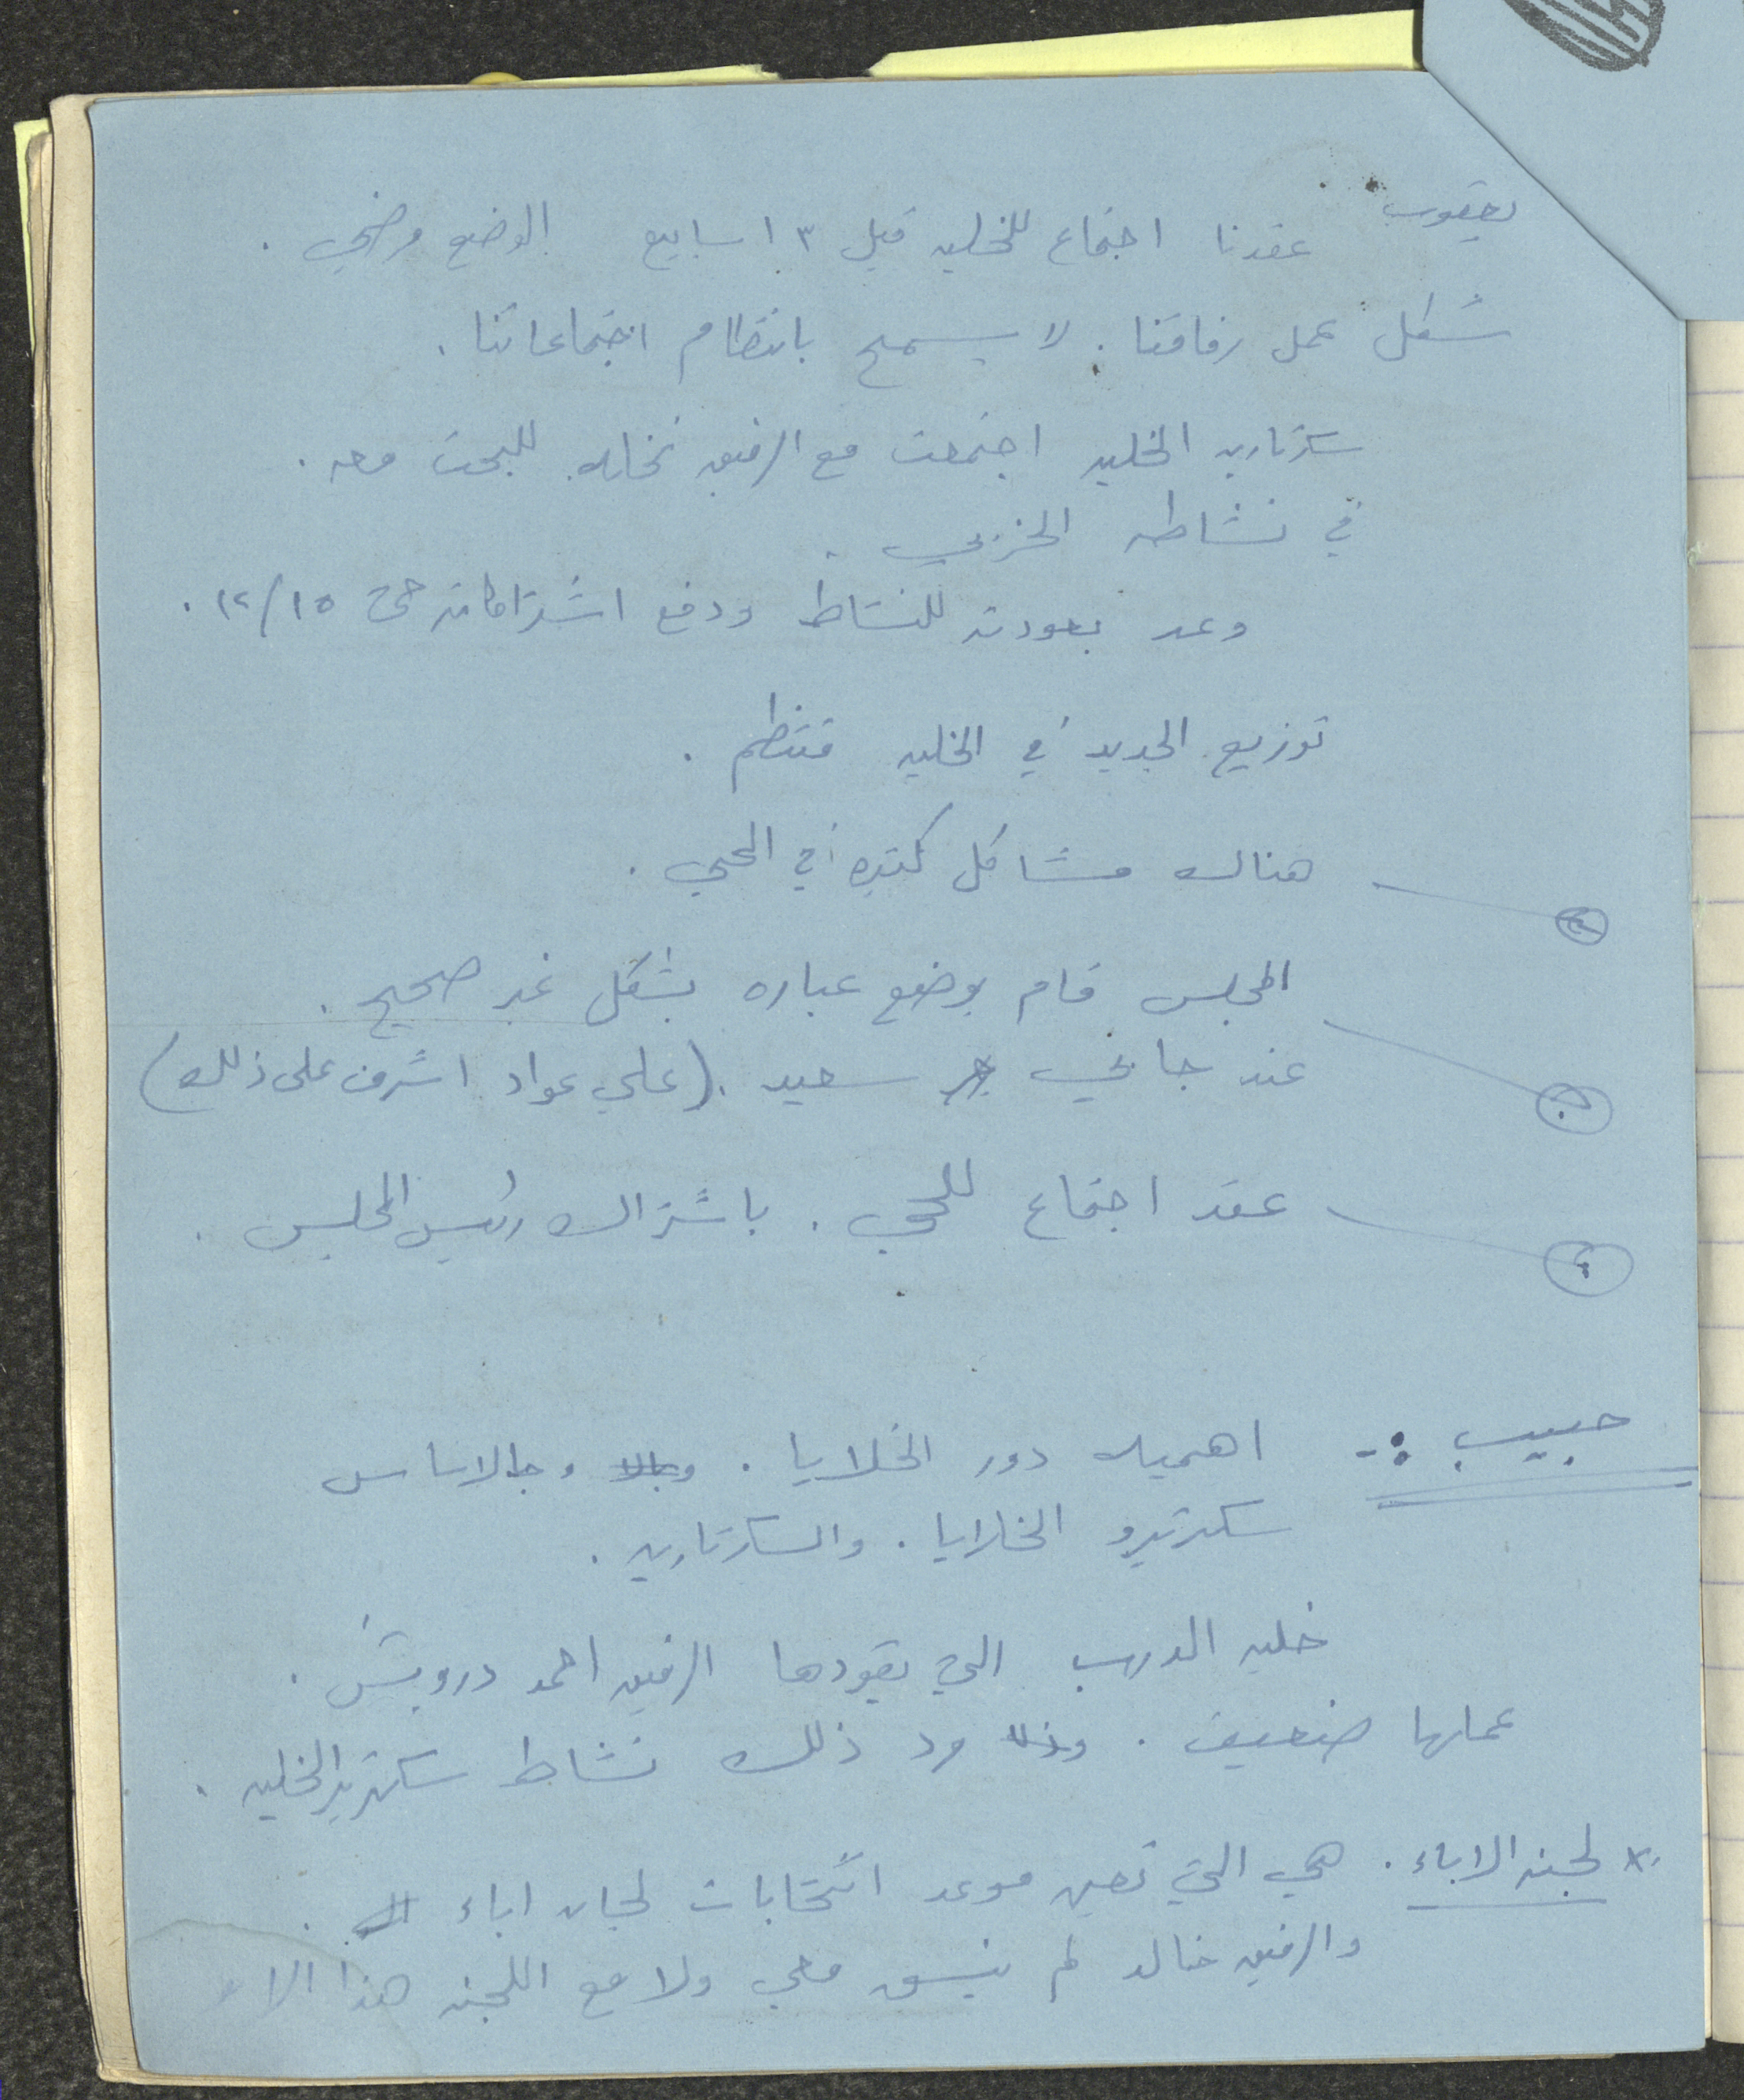 يعقوب عقدنا اجتماع للخليه قبل ٣ اسابيع الوضع مرضي .
شكل عمل رفاقنا . لا يسمح بانتظام اجتماعاتنا .
سكرتاريه الخليه اجتمعت مع الرفيق نخله للبحث معه .
في نشاطه الحزبي .
وعد بعودته للنشاط ودفع اشتراكاته حتى ١٢/١٥ .
توزيع الجديد في الخليه منتظم .
هناك مشاكل كثيره في الحي .
المجلس قام بوضع عباره بشكل غير صحيح .
عند جابي سعيد . (علي عواد اشرف على ذلك)
عقد اجتماع للحي . باشتراك رئيس المجلس .
حبيب :- اهميه دور الخلايا . وبالاساس
سكرتيرو الخلايا . والسكرتاريه .
خليه الدرب التي يقودها الرفيق احمد درويش .
عملها ضعيف . ومرد ذلك نشاط سكرتير الخليه .
* لجنه الاباء . هي التي تعين موعد انتخابات لجان اباء .
والرفيق خالد لم ينسق معي ولا مع اللجنه هذا